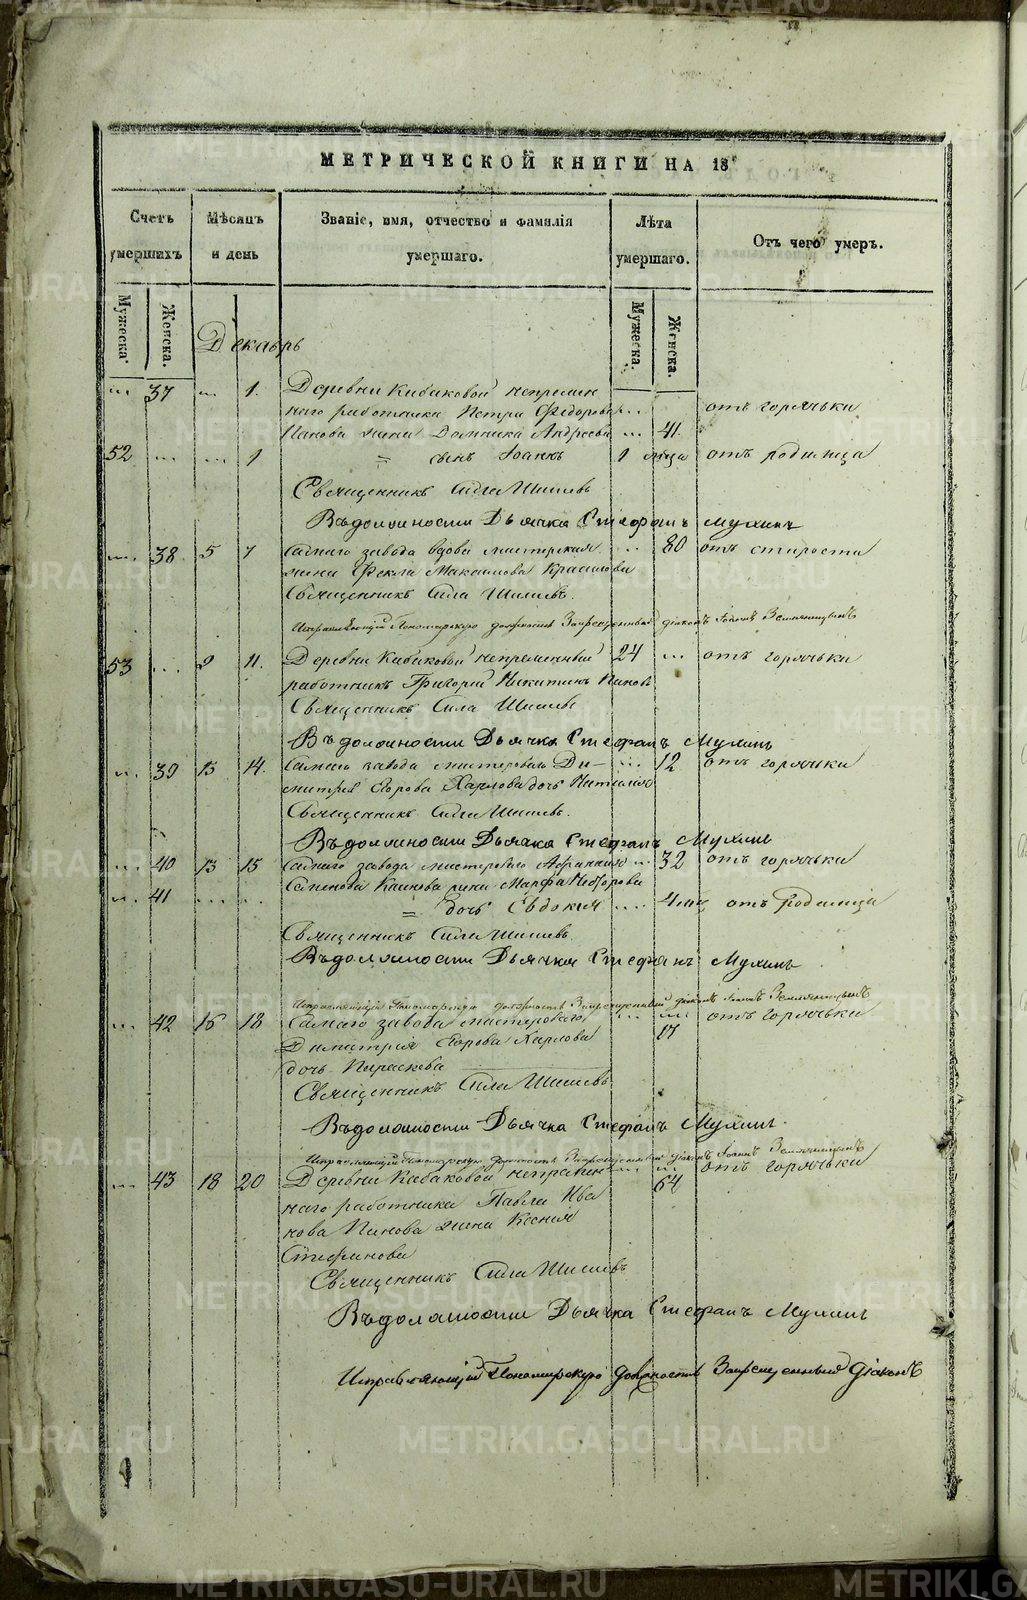 МЕТРИЧЕСКОЙ КНИГИ НА 18
Счетъ умершихъ Мѣсяцъ и день Званіе, имя, отчество и фамилія умершаго. Лѣта умершаго. Отъ чего умеръ.
Мужеска. Женска. Мужеска. Женска.
Декабрь
... 37 ... 1. Деревни Кабаковой непремен
наго работника Петра Федорова ... отъ горячьки
Панова жена Домника Андреева ... 41.
52 ... ... 1 = сынъ Іоаннъ 1 мца отъ родимца
Священникъ Сила Шишевъ
Въ должности Дьячка Стефанъ Мухинъ
... 38 5 7 Самаго завода вдова мастерская ... 80 отъ старости
жена Фекла Максимова Красилова
Священникъ Сила Шишевъ.
Исправляющій Пономарскую должность Запрещенный діаконъ Іоаннъ Земляницынъ
53 ... 9 11. Деревни Кабаковой непременный 24 ... отъ горячьки
работникъ Григорій Никитинъ Пановъ
Священникъ Сила Шишевъ
Въ должности Дьячка Стефанъ Мухинъ
... 39 13 14. Самаго завода мастероваго Ди- ... 12 отъ горячьки
митрія Егорова Харлова дочь Наталия
Священникъ Сила Шишевъ.
Въ должности Дьячка Стефанъ Мухинъ
... 40 13 15 Самаго завода мастероваго ... 32 отъ горячьки
жена Марфа
... 41 ... ... = дочь Евдокия ... 4 мц отъ Родимца
Священникъ Сила Шишевъ
Въ должности Дьячка Стефанъ Мухинъ
Исправляющій Пономарскую должность Запрещенный діаконъ Іоаннъ Земляницынъ
... 42 16 18 Самаго завода мастероваго ... ... отъ горячьки
Димитрия Егорова Харлова 17
дочь Параскева
Священникъ Сила Шишевъ
Въ должности Дьячка Стефанъ Мухинъ.
Исправляющій Пономарскую должность Запрещенный діаконъ Іоаннъ Земляницынъ
... 43 18 20 Деревни Кабаковой непремен ... ... отъ горячьки
наго работника Павла Ива 64
нова Панова жена Ксения
Стефанова
Священникъ Сила Шишевъ
Въ должности Дьячка Стефанъ Мухинъ
Исправляющій Пономарскую должность Запрещенный Діаконъ
METRIKI.GASO-URAL.RU